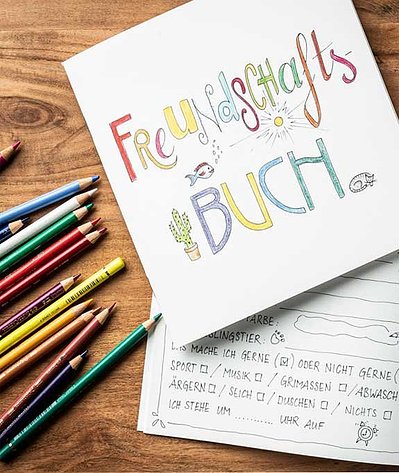 FREUNDSCHAftS
BUCH
FARBE:
LINGSTIER:
MACHE ICH GERNE (☒) ODER NICHT GERNE (
SPORT ☐ / MUSIK ☐ / GRIMASSEN ☐ / ABWASCH
ÄRGERN ☐ / SEICH ☐ / DUSCHEN ☐ / NICHTS ☐
ICH STEHE UM .......... UHR AUF